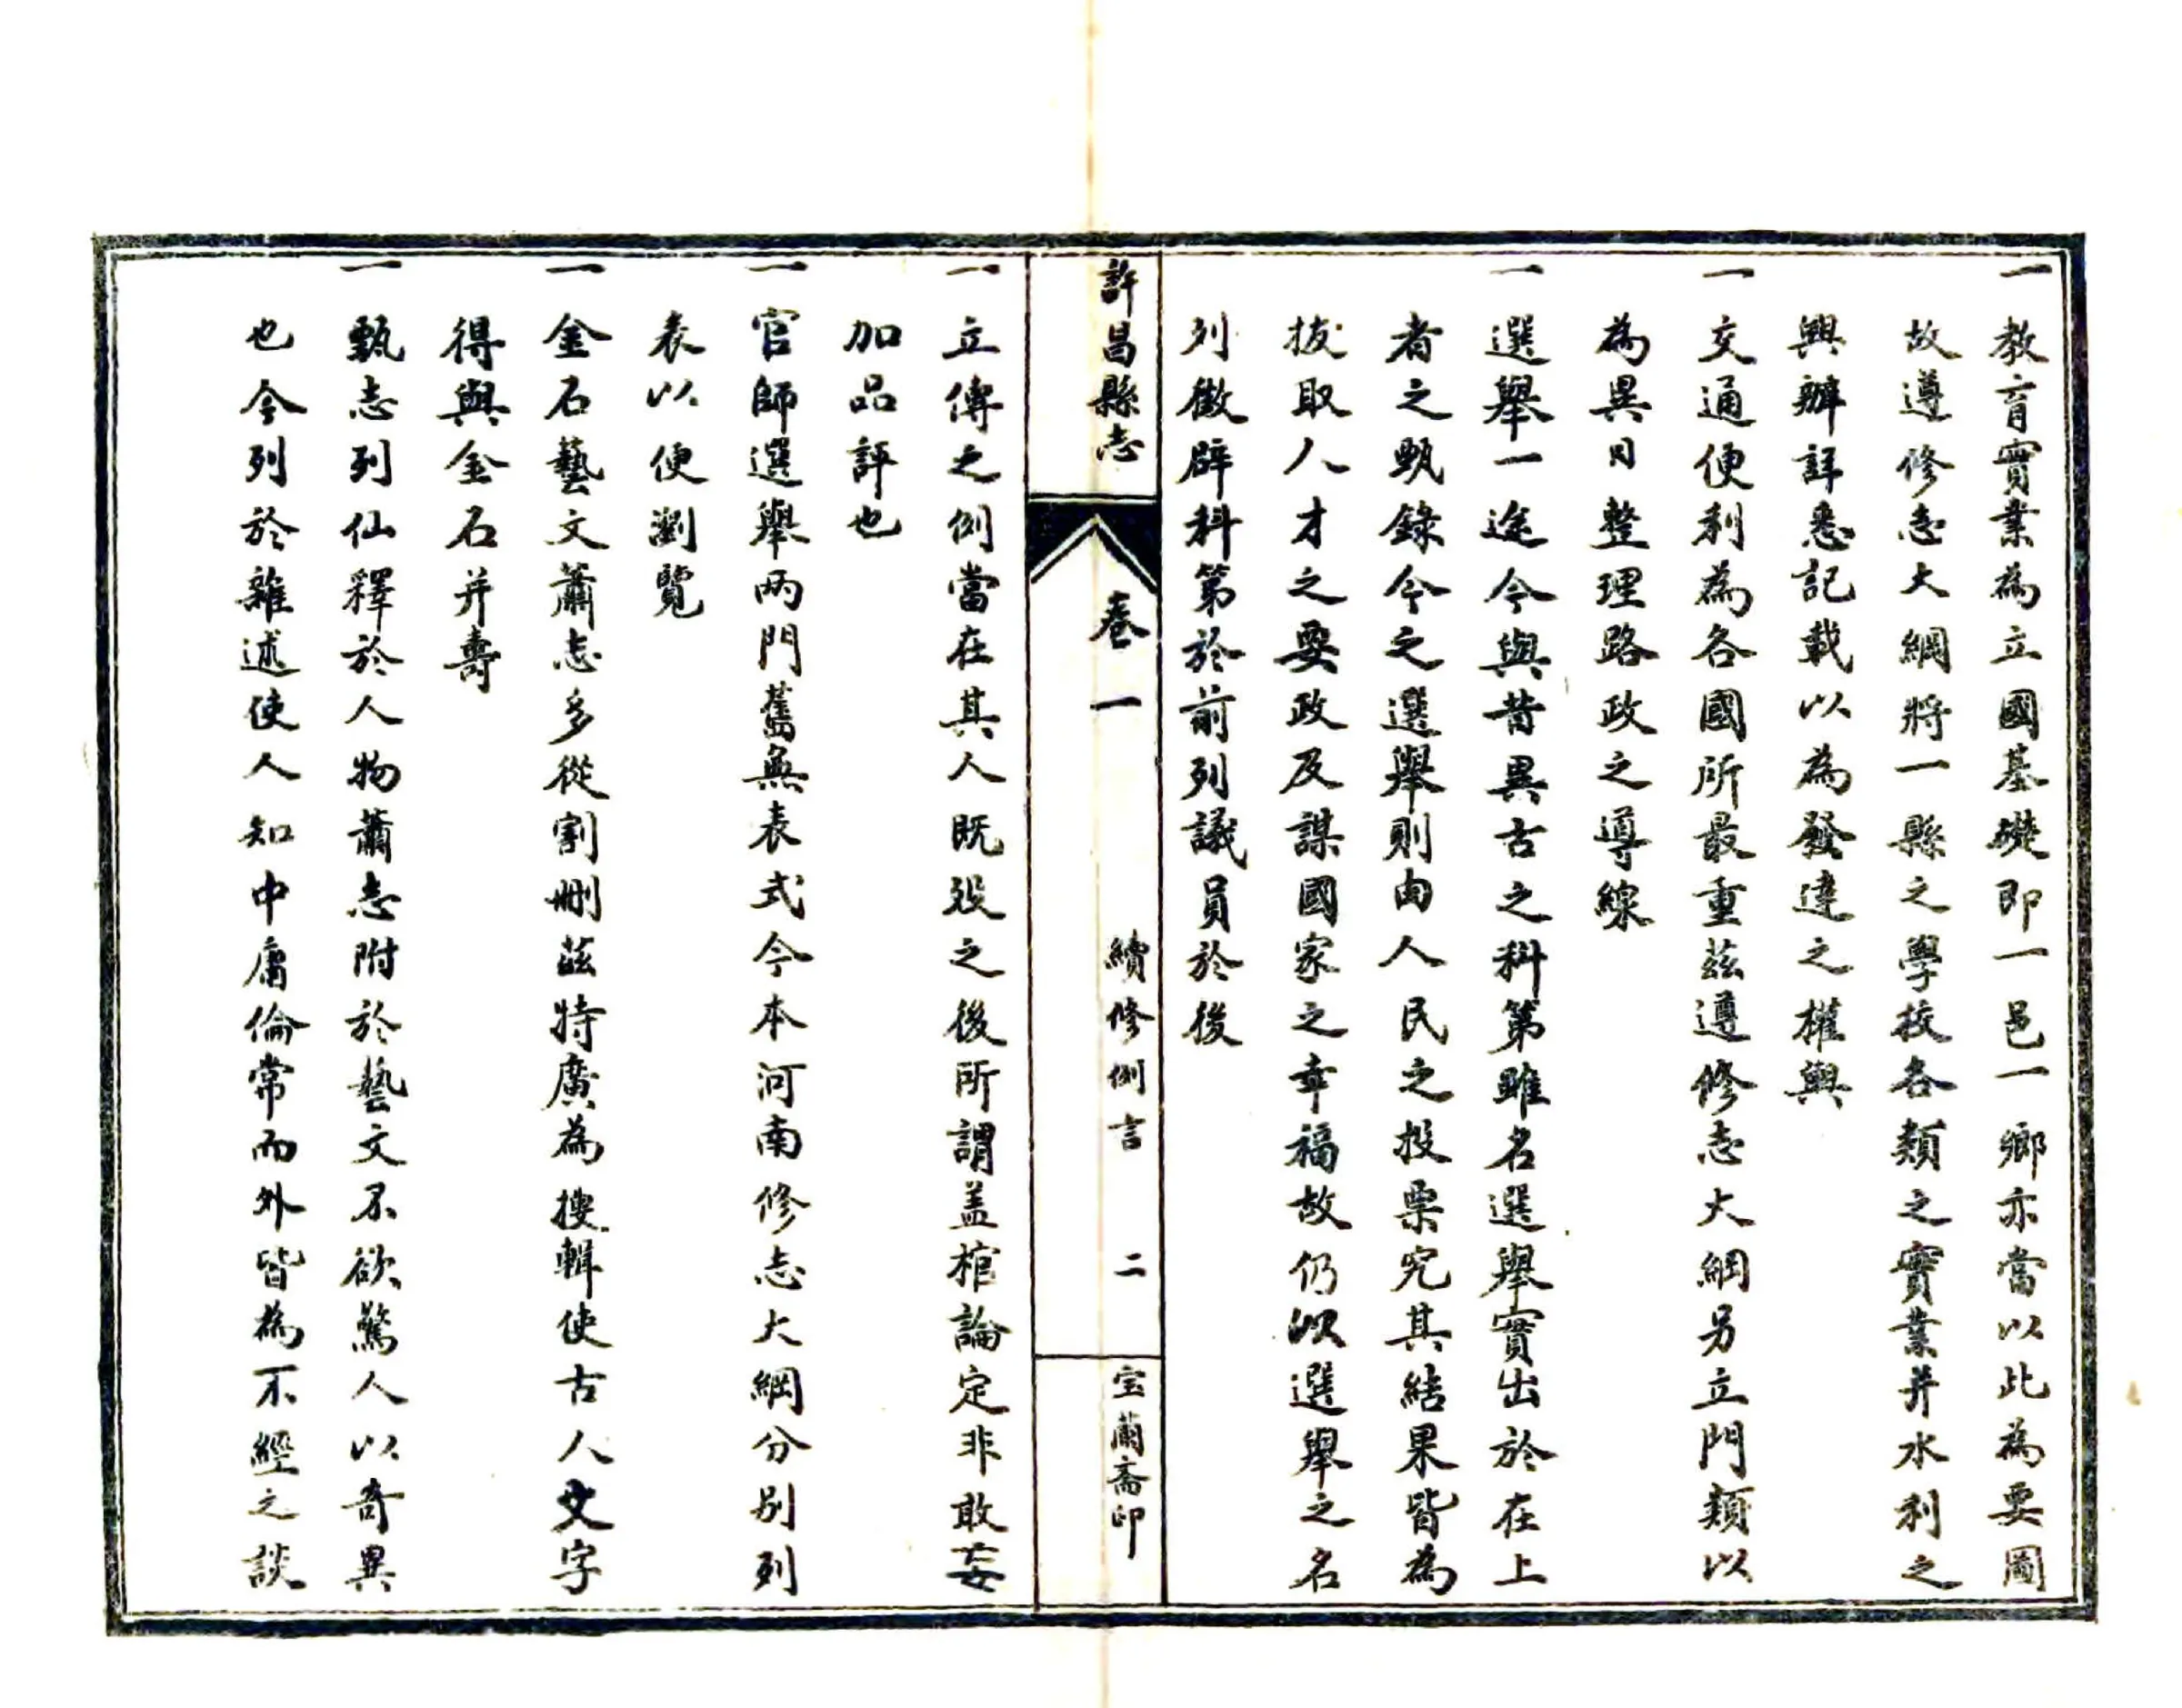 一教育實業為立國基礎即一邑一鄉亦當以此為要圖
故遵修志大綱將一縣之學校各類之實業并水利之
興辦詳悉記載以為發達之權輿
一交通便利為各國所最重茲遵修志大綱另立門類以
為異日整理路政之導線
一選舉一途今與昔異古之科第雖名選舉實出於在上
者之甄錄今之選舉則由人民之投票究其結果皆為
拔取人才之要政及謀國家之幸福故仍以選舉之名
列徵辟科第於前列議員於後
許昌縣志
卷一
續修例言
二
宝蘭斋印
一立傳之例當在其人既歿之後所謂盖棺論定非敢妄
加品評也
一官師選舉两門舊無表式今本河南修志大綱分別列
表以便瀏覽
一金石藝文蕭志多從割刪茲特廣為搜輯使古人文字
得與金石并壽
一甄志列仙釋於人物蕭志附於藝文不欲驚人以奇異
也今列於雜述使人知中庸倫常而外皆為不經之談